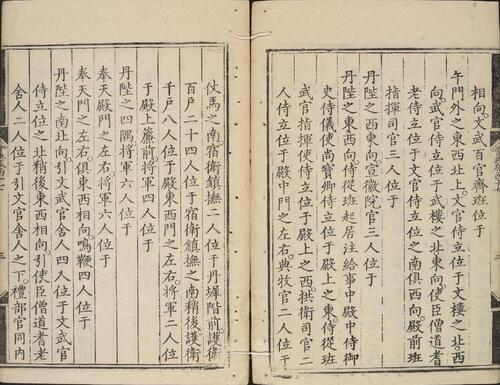 相向文武百官齋班位于
午門外之東西北上文官侍立位于文樓之北西
向武官侍立位于武樓之北東向使臣僧道耆
老侍立位于文官侍立位之南俱西向殿前班
指揮司官三人位于
丹陛之西東向宣徽院官三人位于
丹陛之東西向侍從班起居注給事中殿中侍御
史侍儀使尚寶卿侍立位于殿上之東侍從班
武官指揮使侍立位于殿上之西拱衛司官二
人侍立位于殿中門之左右典牧官二人位于
仗馬之南宿衛鎮撫二人位于丹墀階前護衛
百戶二十四人位于宿衛鎮撫之南稍後護衛
千戶八人位于殿東西門之左右將軍二人位
于殿上簾前將軍四人位于
丹陛之四隅將軍六人位于
奉天殿門之左右將軍六人位于
奉天門之左右俱東西相向鳴鞭四人位于
丹陛之南北向引文武官舍人四人位于文武官
侍立位之北稍後東西相向引使臣僧道耆老
舍人二人位于引文官舍人之下禮部官同內